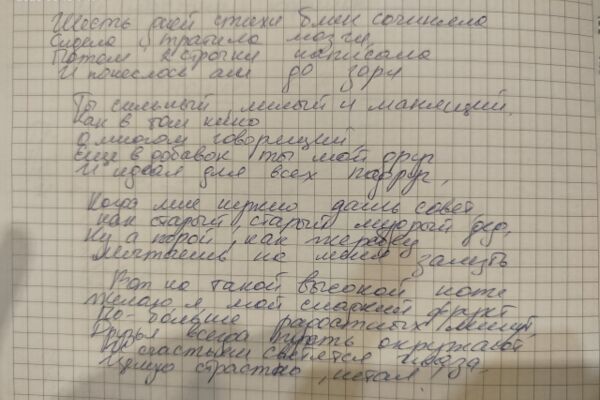 Шесть дней стихи блин сочиняла
Сидела, тратила мозги,
Потом 2 строчки написала
И понеслось аж до зори
Ты сильный, милый и манящий,
Как в том кино
о многом говорящий,
Еще в добавок ты мой друг
И идеал для всех подруг,
Когда мне нужно дашь совет,
как старый, старый мудрый дед,
Ну а порой, как жеребец
Мечтаешь на меня залезть
Вот на такой высокой ноте
Желаю я мой сладкий фрукт
По-больше радостных минут,
Друзья всегда пусть окружают,
счастьем светятся глаза,
Целую страстно,